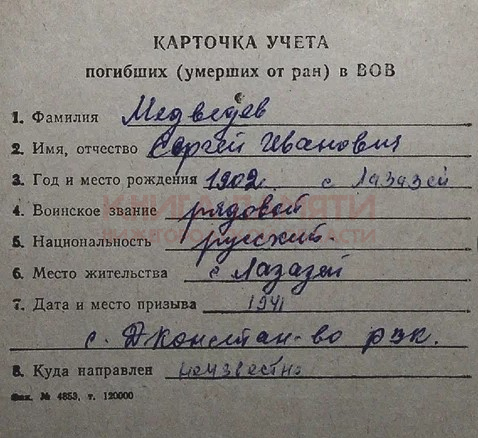 КАРТОЧКА УЧЕТА
погибших (умерших от ран) в ВОВ
1. Фамилия Медведев
2. Имя, отчество Сергей Иванович
3. Год и место рождения 1902. с Лазазей
КНИГА ПАМЯТИ
4. Воинское звание рядовой
НИЖЕГОРОДСКОЙ ОБЛАСТИ
5. Национальность русский
6. Место жительства с Лазазей
7. Дата и место призыва 1941
с. Дконстан-во рвк.
8. Куда направлен неизвестно
Зак. № 4853, т. 120000